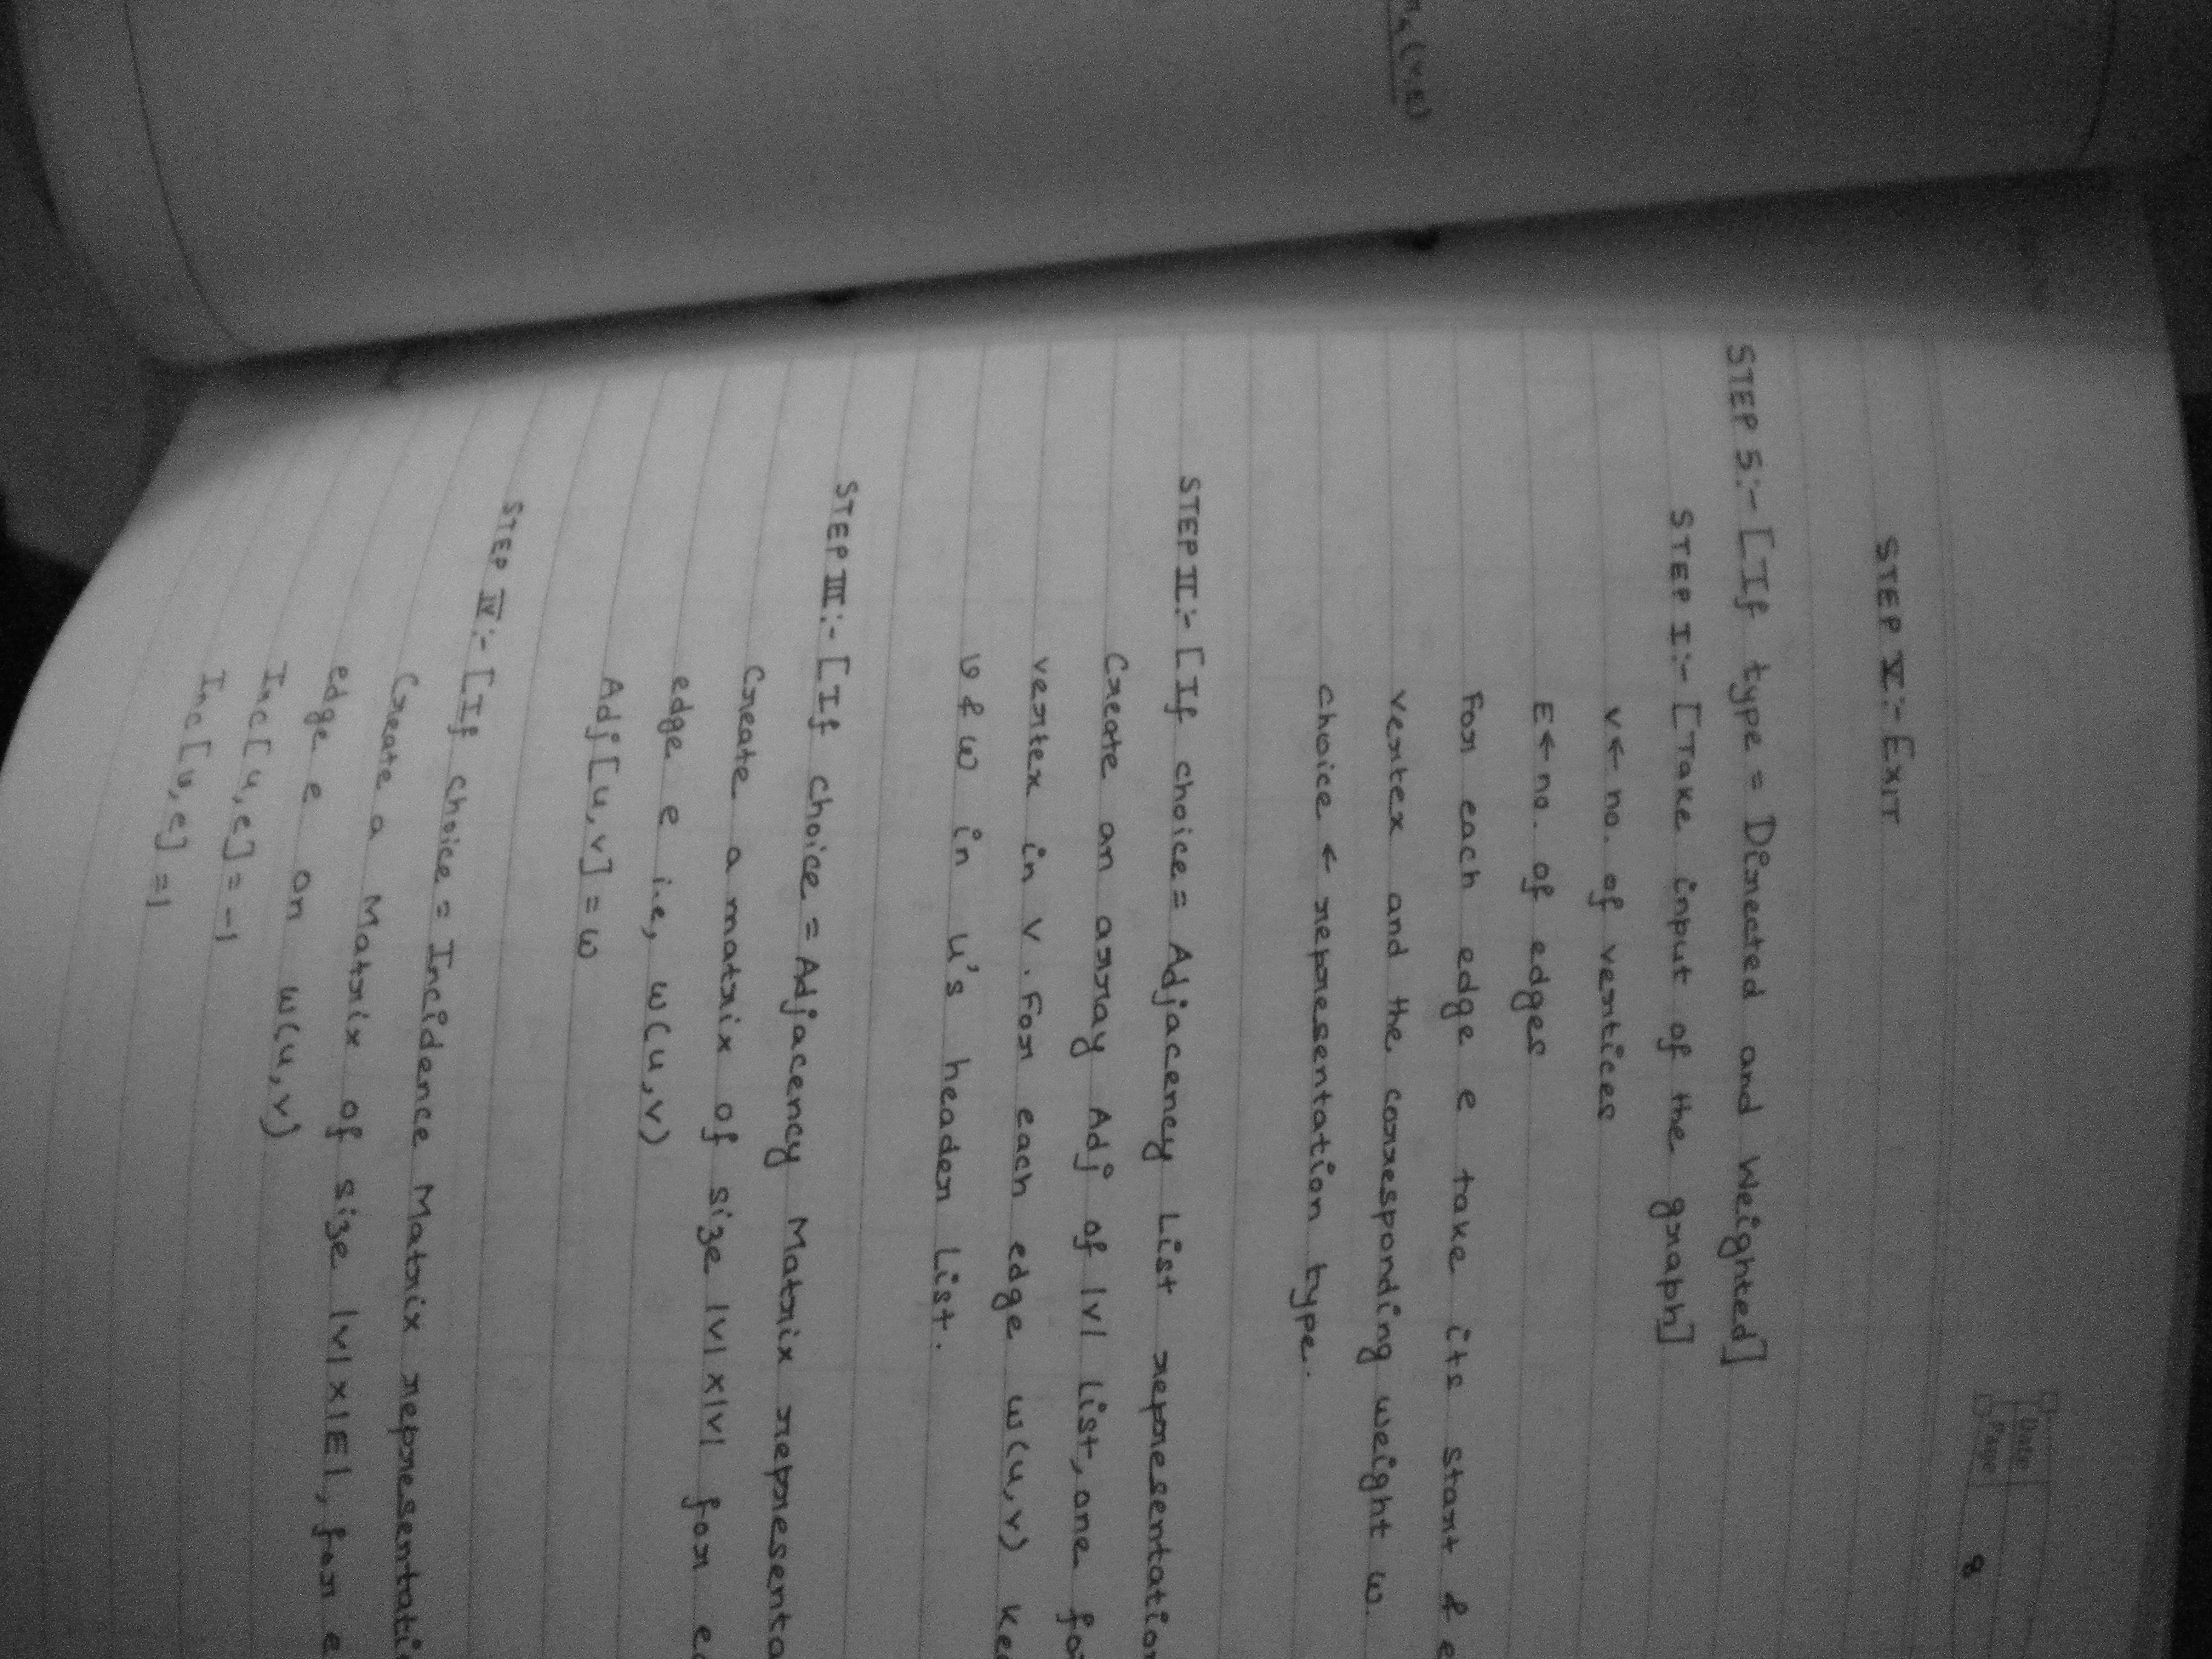 Date
Page 8
STEP V:- EXIT
STEP 5:- [If type = Directed and Weighted]
STEP I:- [Take input of the graph]
V← no. of vertices
E← no. of edges
For each edge e take its start & e
vertex and the corresponding weight w.
choice ← representation type.
STEP II:- [If choice = Adjacency List representation
Create an array Adj of |V| list, one fo
vertex in V. For each edge w(u,v) Kee
v & w in u's header List.
STEP III:- [If choice = Adjacency Matrix representa
Create a matrix of size |V|x|V| for ea
edge e i.e, w(u,v)
Adj[u,v] = w
STEP IV:- [If choice = Incidence Matrix representati
Create a Matrix of size |V|x|E|, for e
edge e or w(u,v)
Inc[u,e] = -1
Inc[v,e] = 1